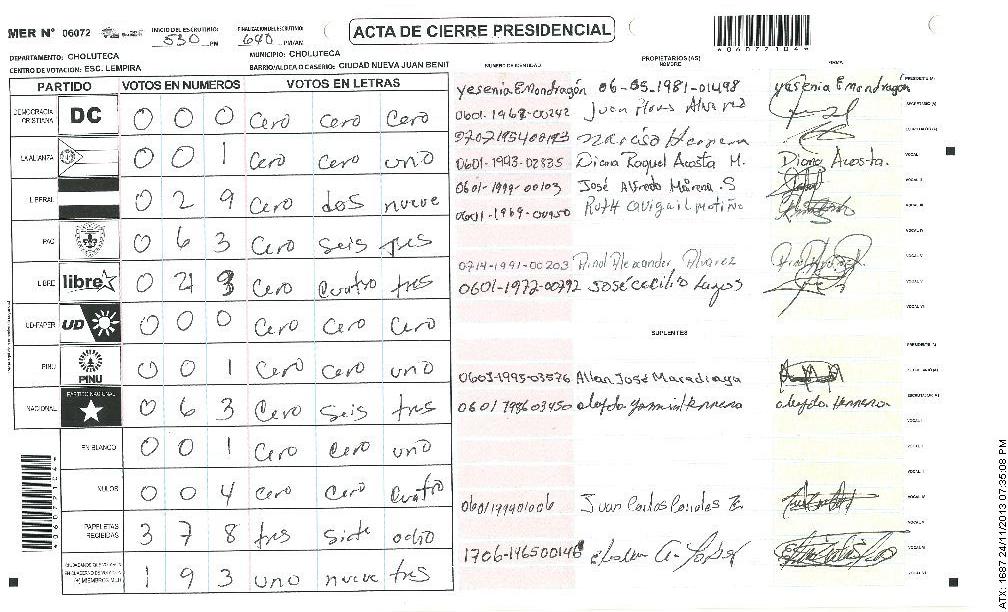 MER Nº 06072
INICIO DEL ESCRUTINIO: 530 PM
FINALIZACION DE ESCRUTINIO: 640 PM/AM
ACTA DE CIERRE PRESIDENCIAL
*06072104*
DEPARTAMENTO: CHOLUTECA
MUNICIPIO: CHOLUTECA
CENTRO DE VOTACION: ESC. LEMPIRA
BARRIO/ALDEA O CASERIO: CIUDAD NUEVA JUAN BENIT
PARTIDO VOTOS EN NUMEROS VOTOS EN LETRAS
NUMERO DE IDENTIDAD
PROPIETARIOS (AS)
NOMBRE
FIRMA
DEMOCRACIA CRISTIANA DC 0 0 0 Cero cero cero
LA ALIANZA 0 0 1 Cero Cero uno
LIBERAL 0 2 9 Cero dos nueve
PAC 0 6 3 Cero Seis tres
LIBRE libre 0 Cero Cuatro tres
UD-FAPER UD 0 0 0 Cero Cero Cero
PINU PINU 0 0 1 Cero Cero uno
NACIONAL PARTIDO NACIONAL 0 6 3 Cero Seis tres
EN BLANCO 0 0 1 Cero Cero uno
NULOS 0 0 4 Cero Cero Cuatro
PAPELETAS RECIBIDAS 3 7 8 tres siete ocho
1 9 3 uno nueve tres
yesenia E Mondragón 06-05-1981-01498 yesenia E mondragón
0601-1968-00242 Juan Flores Alvarez
Narciso Herrera
0601-1993-02335 Diana Raquel Acosta M. Diana Acosta.
0601-1999-00103 José Alfredo Moreno S
0601-1969-00950 Ruth Avigail Motiño
0714-1991-00203 Alexander Alvarez
0601-1972-00792 José Cecilio Lagos
SUPLENTES
0603-1995-03576 Allan José Maradiaga
Herrera
Juan Carlos
PRESIDENTE (A)
SECRETARIO (A)
ESCRUTADOR (A)
VOCAL I
VOCAL II
VOCAL III
VOCAL IV
VOCAL V
VOCAL VI
*06072104*
ATX: 1687 24/11/2013 07:35:08 PM